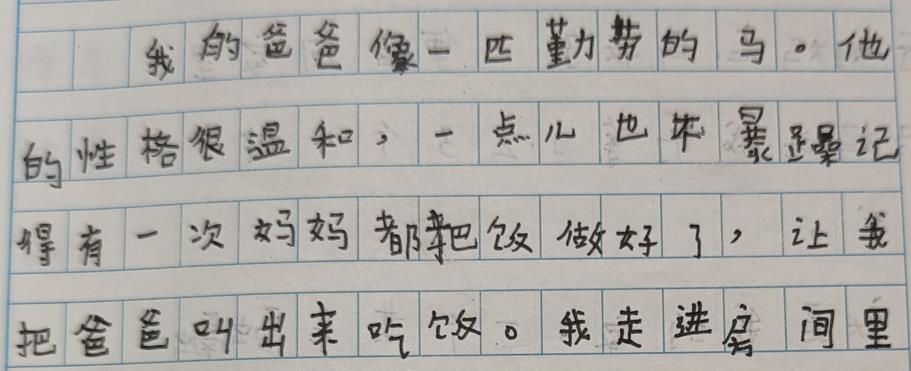 我的爸爸像一匹勤劳的马。他
的性格很温和，一点儿也不暴躁记
得有一次妈妈都把饭做好了，让我
把爸爸叫出来吃饭。我走进房间里